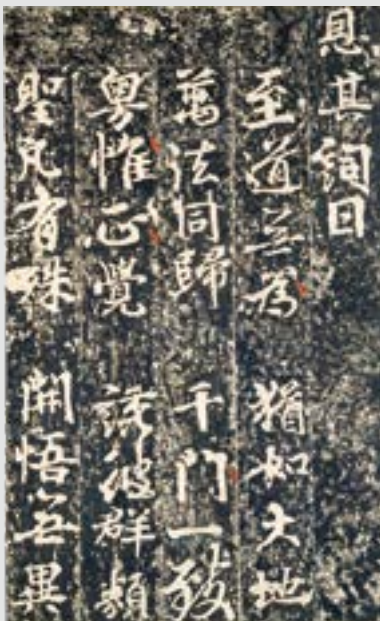 息其詞曰
至道無為 猶如大地
萬法同歸 千門一致
粵惟正覺 誘彼群類
聖凡有殊 開悟無異